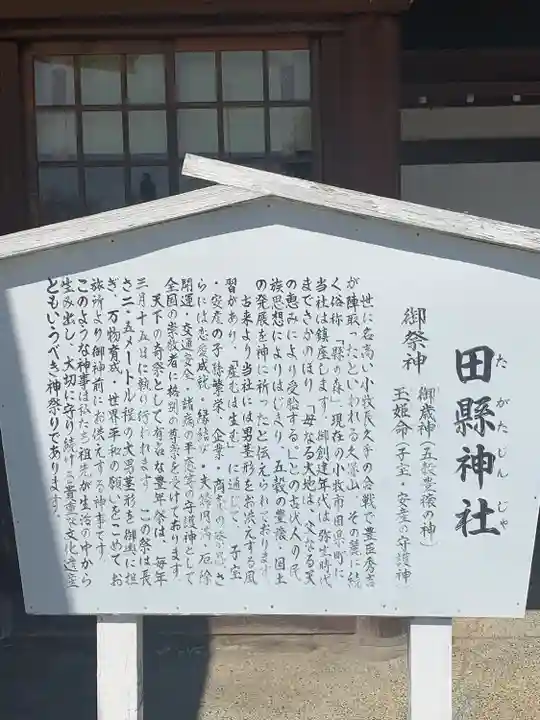 田縣神社
たがたじんじゃ
御祭神
御歳神(五穀豊穣の神)
玉姫命(子宝・安産の守護神)
世に名高い小牧長久手の合戦で豊臣秀吉
が陣取ったといわれる久保山、その麓に続
く俗称「縣の森」現在の小牧市田県町に
当社は鎮座します。御創建年代は弥生時代
までさかのぼり、「母なる大地は、父なる天
の恵みにより受胎する」との古代人の民
族思想によりはじまり、五穀の豊穣・国土
の発展を神に祈ったと伝えられております。
古来より当社には男茎形をお供えする風
習があり、「産むは生む」に通じて、子宝
・安産の子孫繁栄・企業・商売の繁昌、さ
らには恋愛成就・縁結び・夫婦円満・厄除
開運・交通安全・諸病の平癒等の守護神として
全国の崇敬者の格別の尊崇を受けております。
天下の奇祭として有名な豊年祭は、毎年
三月十五日に執り行われます。この祭は長
さ二・五メートル程の大男茎形を御輿に担
ぎ、万物育成・世界平和の願いをこめてお
旅所より御神前にお供えする神事です。
このような神事は私たち祖先が生活の中から
生み出し、大切に守り続けた貴重な文化遺産
ともいうべき神祭りであります。